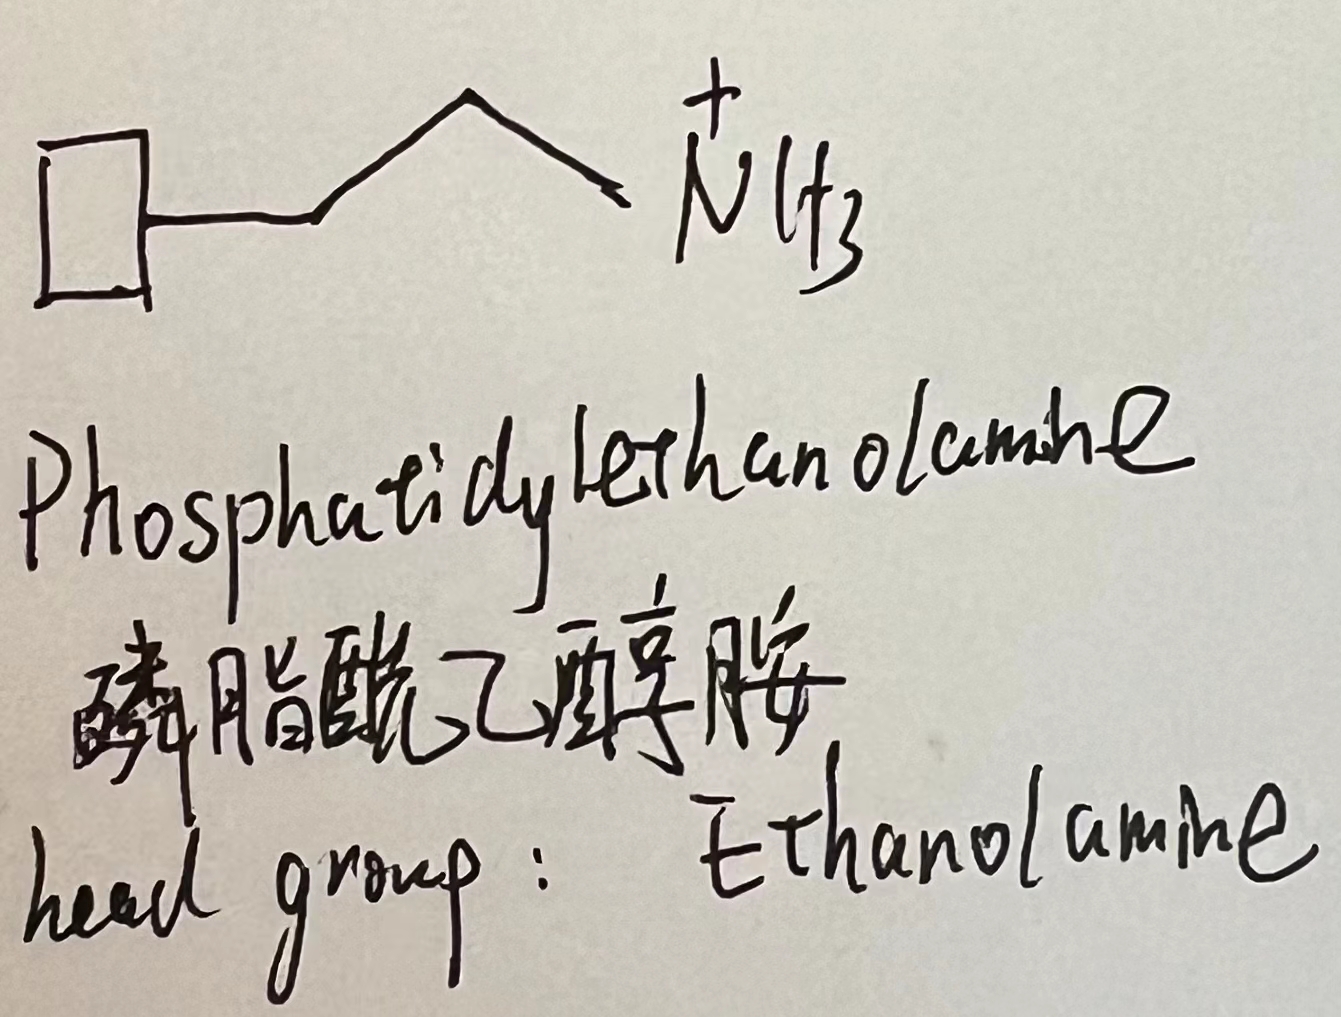 +
NH3
Phosphatidylethanolamine
磷脂酰乙醇胺
head group: Ethanolamine